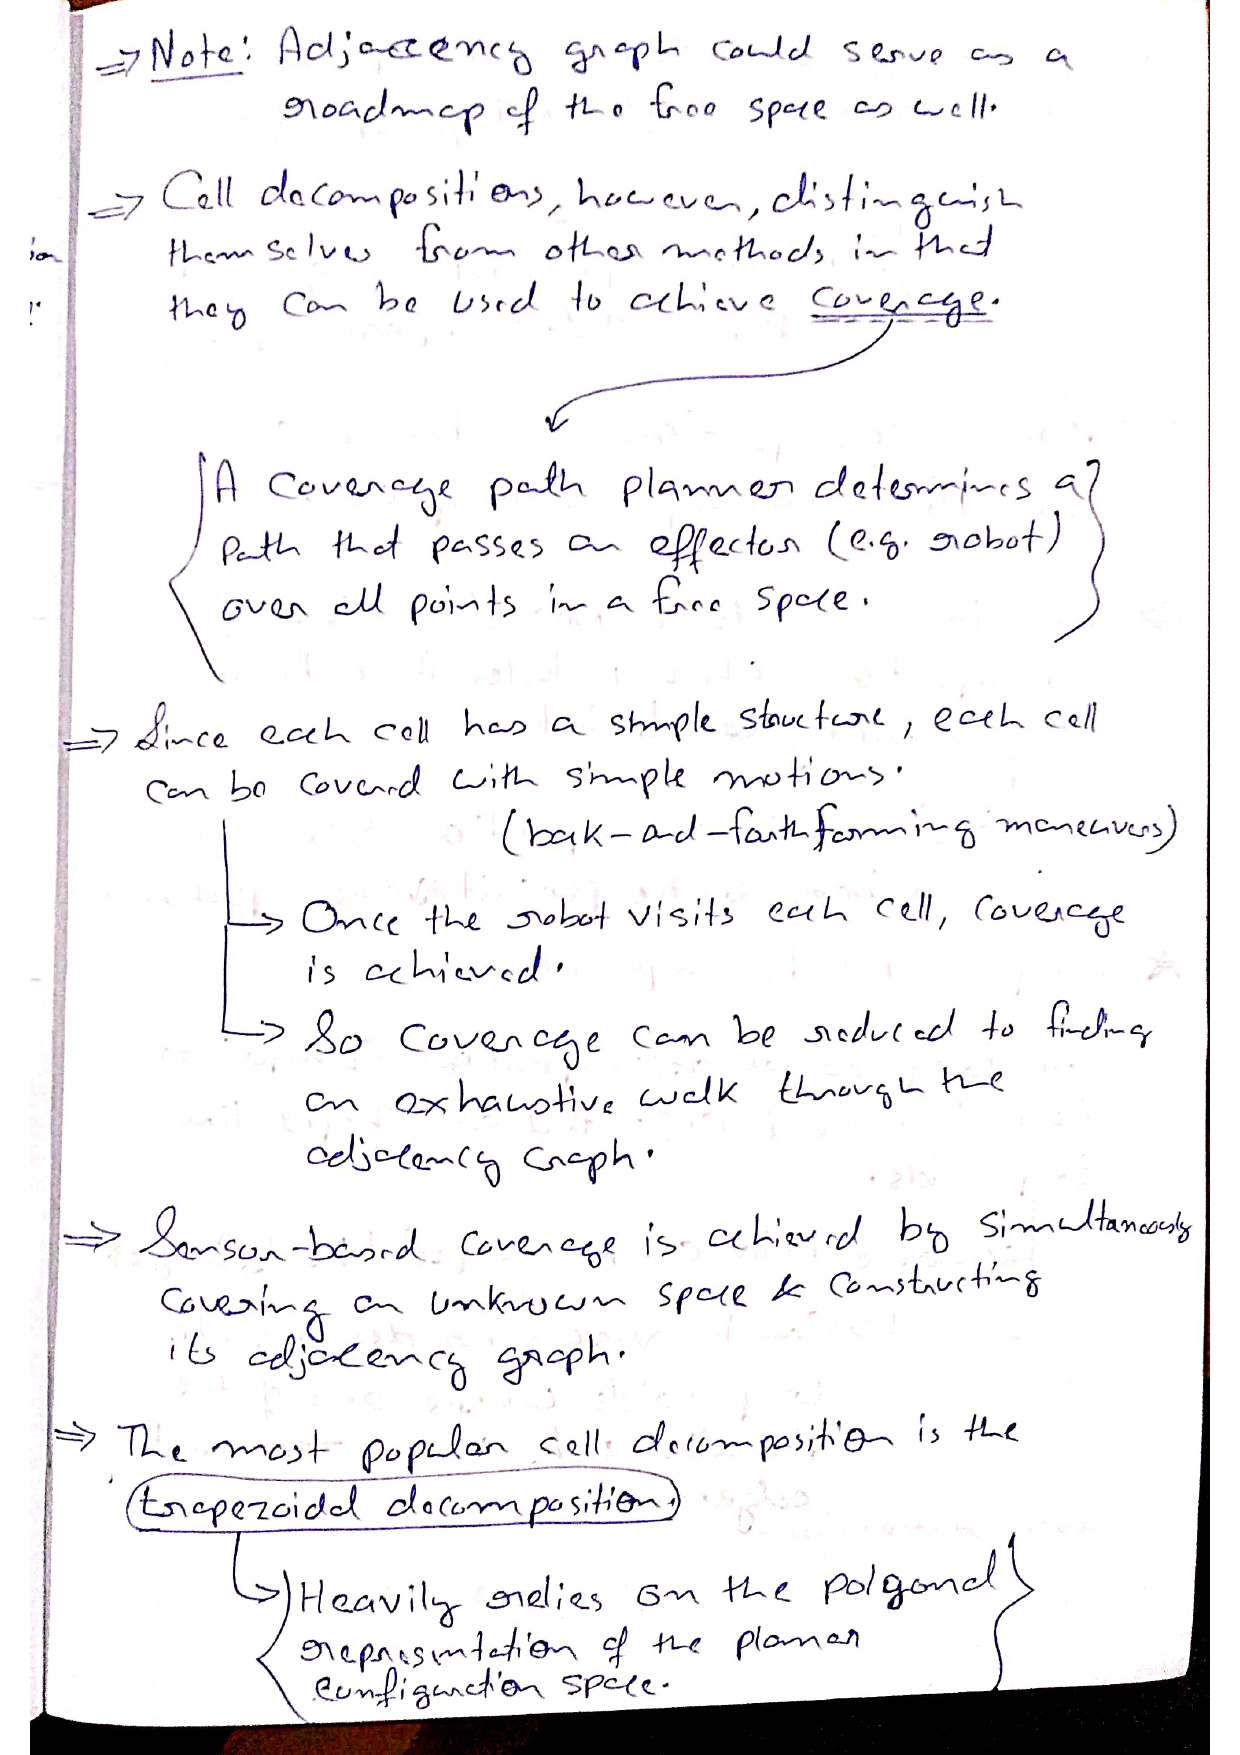 ⇒ Note: Adjaccency graph could serve as a
roadmap of the free space as well.
⇒ Cell decompositions, however, distinguish
themselves from other methods in that
they can be used to achieve coverage.
A coverage path planner determines a
path that passes an effector (e.g. robot)
over all points in a free space.
⇒ Since each cell has a simple structure, each cell
can be covered with simple motions.
(back-and-forth farming maneuvers)
→ Once the robot visits each cell, coverage
is achieved.
→ So coverage can be reduced to finding
an exhaustive walk through the
adjacency graph.
⇒ Sensor-based coverage is achieved by simultaneously
covering an unknown space & constructing
its adjacency graph.
⇒ The most popular cell decomposition is the
trapezoidal decomposition.
→ Heavily relies on the polgonal
representation of the planar
configuration space.